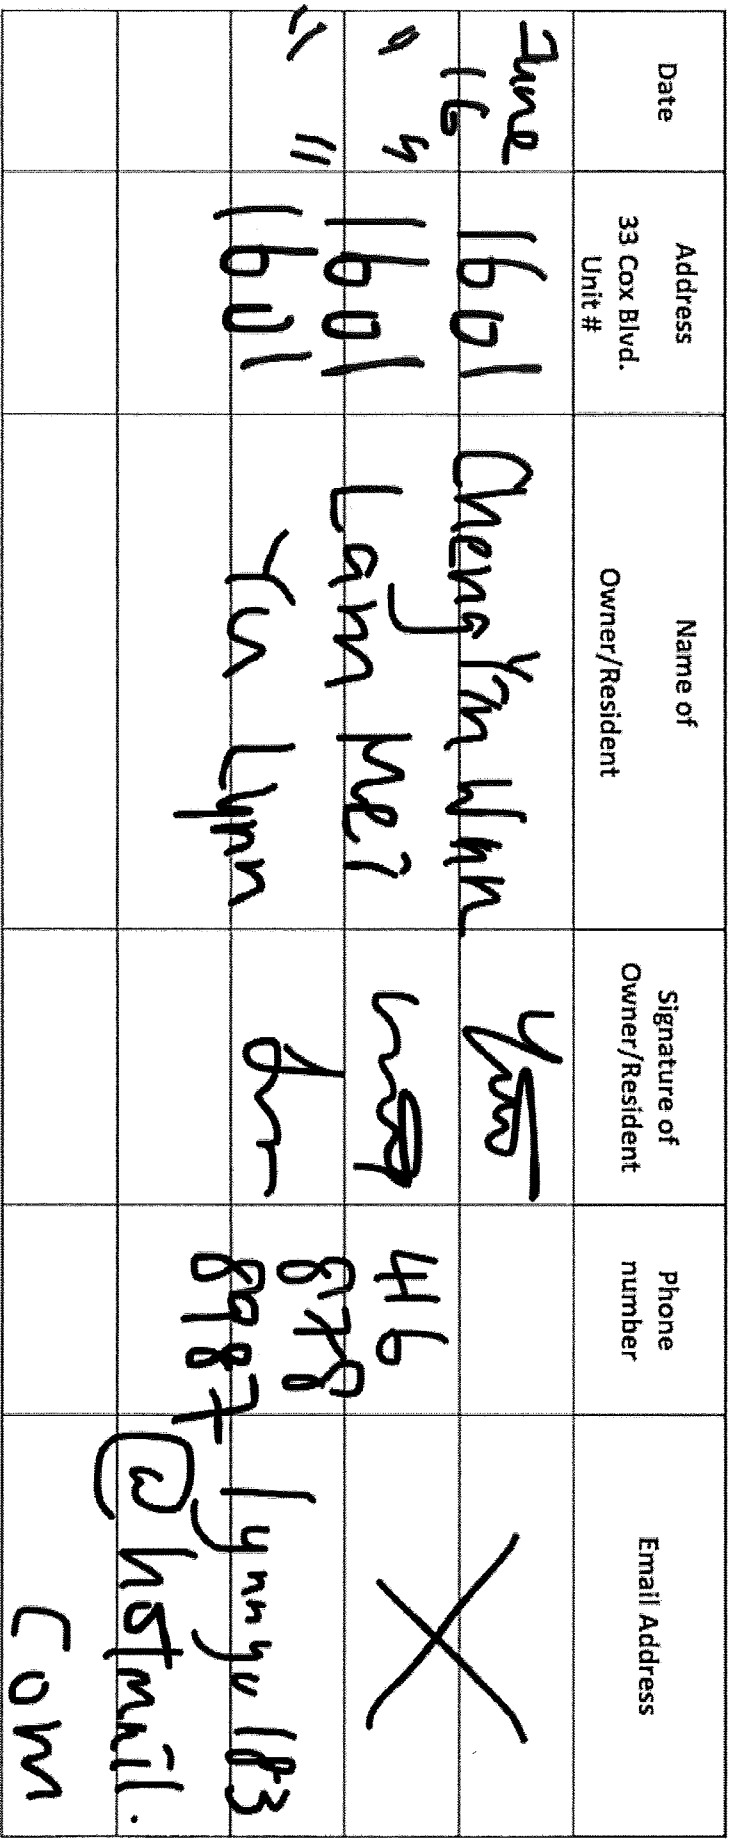 Date
Address
33 Cox Blvd.
Unit #
Name of
Owner/Resident
Signature of
Owner/Resident
Phone
number
Email Address
June
16
1601
Cheng Yin Wan
" "
1601
Lam Mei
" "
1601
Yu Lynn
416
878
8987
lynnyu183
@hotmail.
com